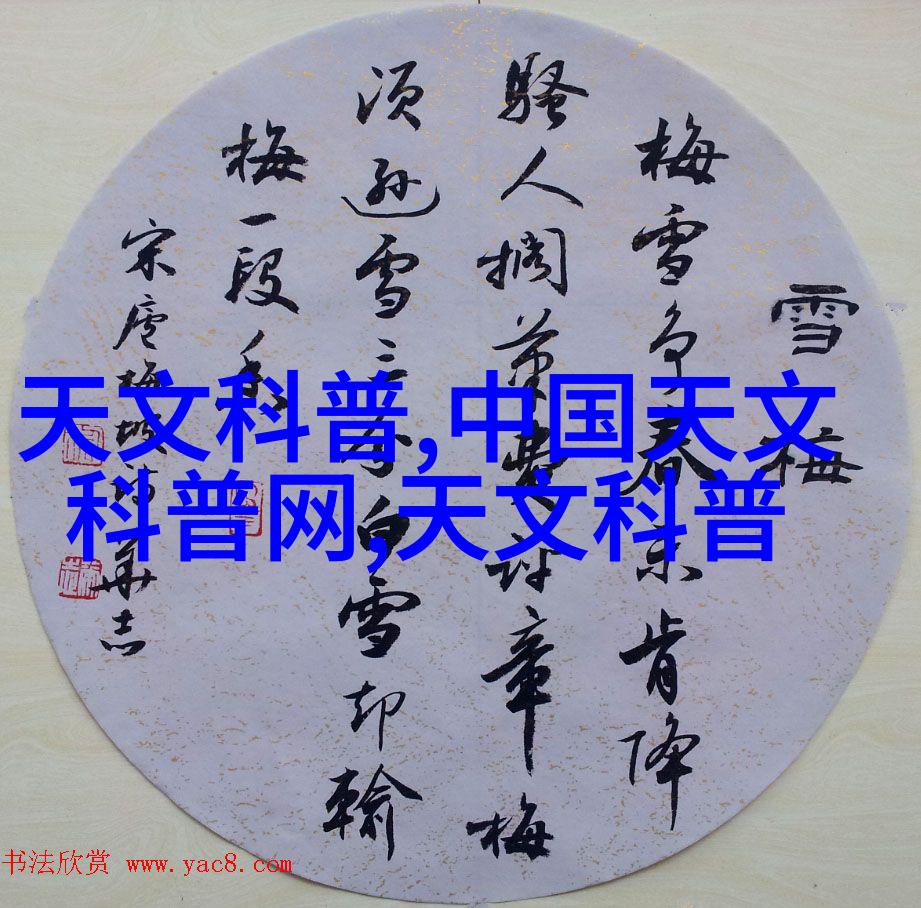 雪梅
梅雪争春未肯降
骚人搁筆費评章梅
须逊雪三分白雪却输
梅一段香
宋卢梅坡诗华志
天文科普,中国天文
科普网,天文科普
书法欣赏 www.yac8.com